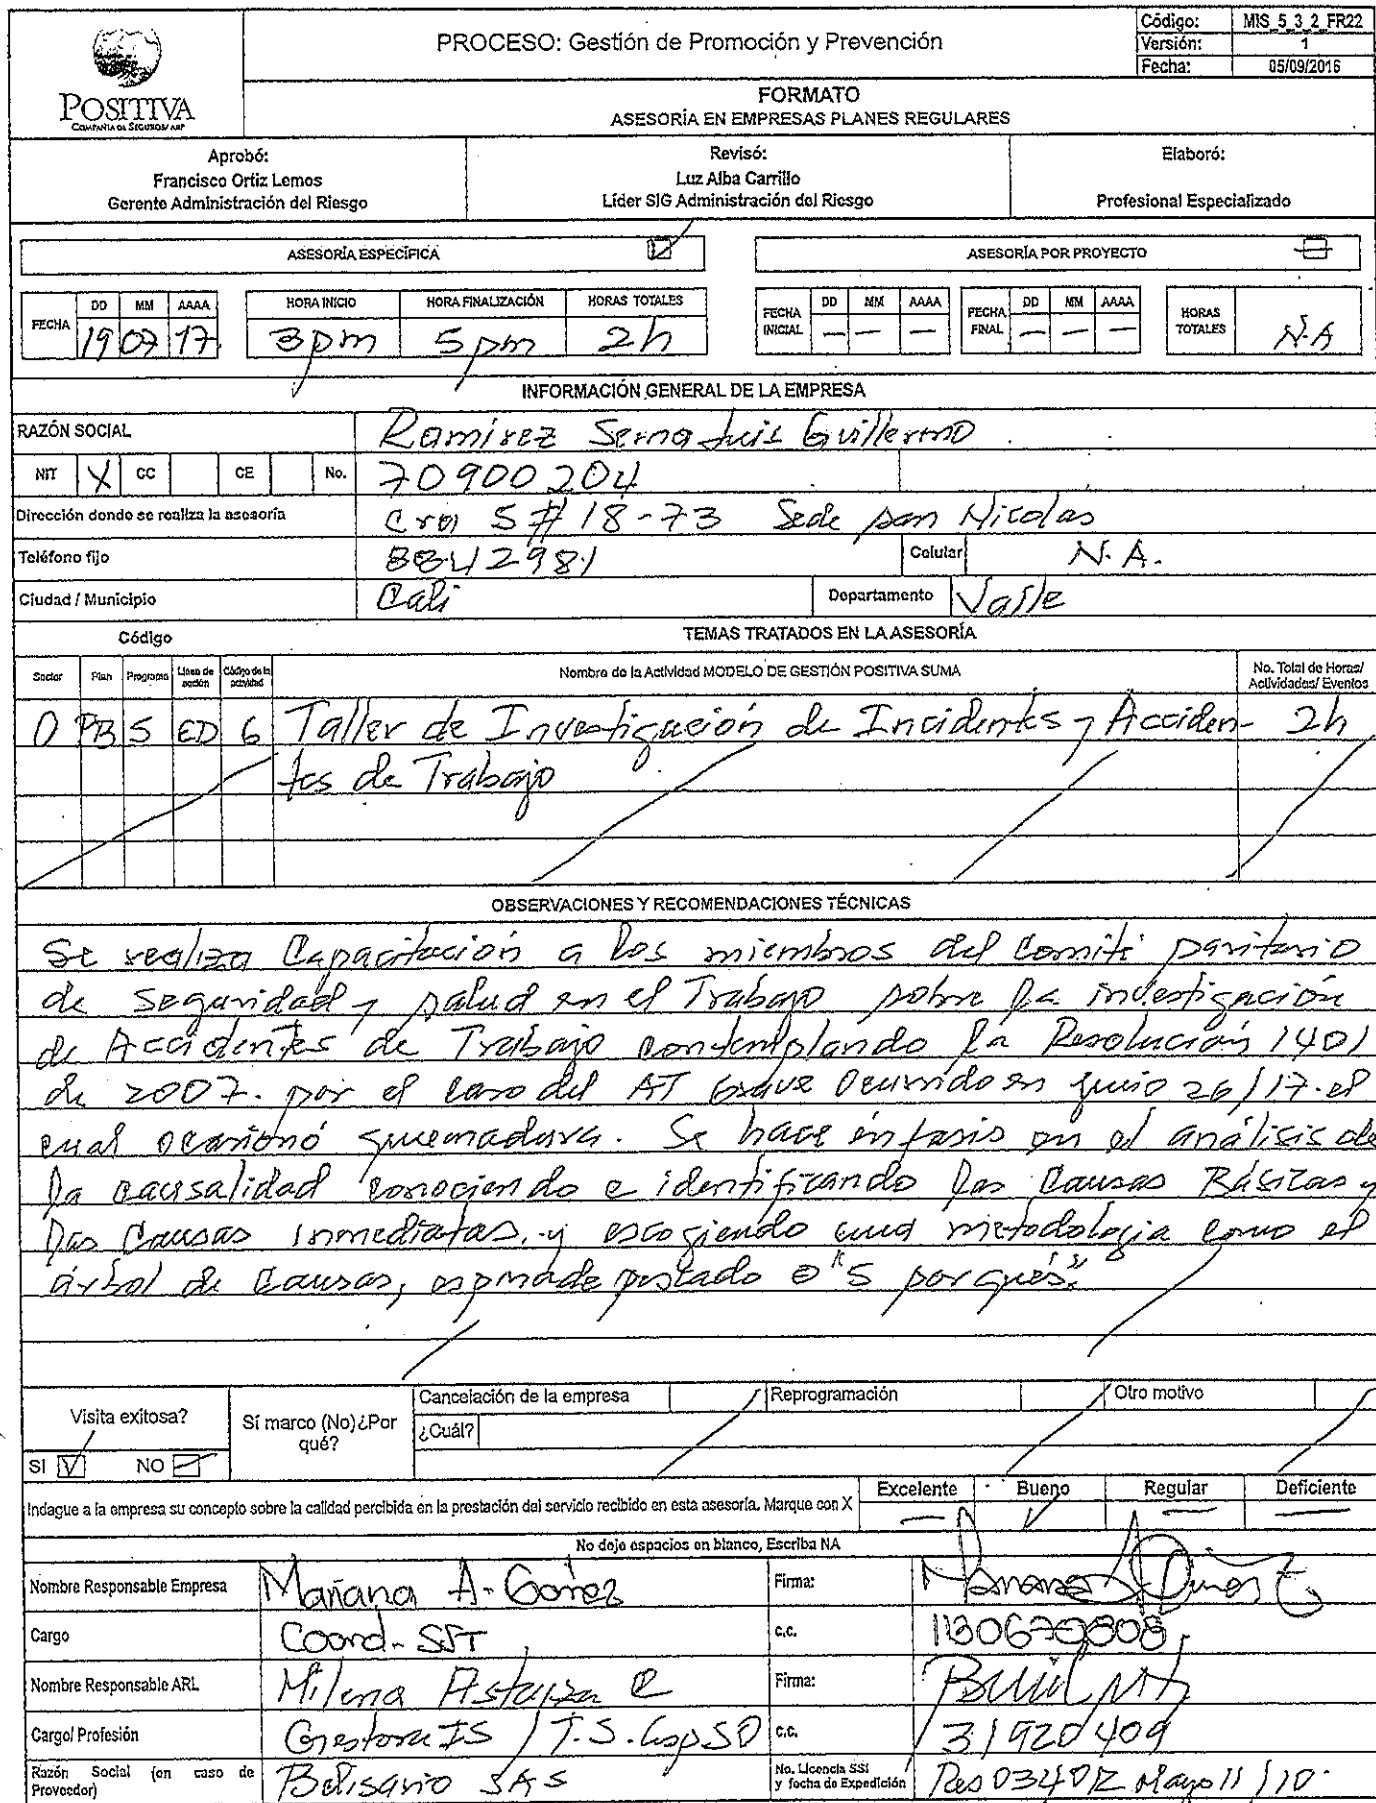 Código: MIS_5_3_2_FR22
PROCESO: Gestión de Promoción y Prevención
Versión: 1
Fecha: 05/09/2016
POSITIVA
COMPAÑÍA DE SEGUROS/ ARP
FORMATO
ASESORÍA EN EMPRESAS PLANES REGULARES
Aprobó: Revisó: Elaboró:
Francisco Ortiz Lemos Luz Alba Carrillo
Gerente Administración del Riesgo Líder SIG Administración del Riesgo Profesional Especializado
ASESORÍA ESPECÍFICA ASESORÍA POR PROYECTO
FECHA DD MM AAAA HORA INICIO HORA FINALIZACIÓN HORAS TOTALES FECHA INICIAL DD MM AAAA FECHA FINAL DD MM AAAA HORAS TOTALES
19 07 17 3pm 5pm 2h — — — — — — N.A
INFORMACIÓN GENERAL DE LA EMPRESA
RAZÓN SOCIAL Ramirez Serna Luis Guillermo
NIT X CC CE No. 70900204
Dirección donde se realiza la asesoría Cra 5 # 18-73 Sede san Nicolas
Teléfono fijo 8842981 Celular N.A.
Ciudad / Municipio Cali Departamento Valle
Código TEMAS TRATADOS EN LA ASESORÍA
Sector Plan Programa Línea de acción Código de la actividad Nombre de la Actividad MODELO DE GESTIÓN POSITIVA SUMA No. Total de Horas/ Actividades/ Eventos
0 PB 5 ED 6 Taller de Investigación de Incidentes y Acciden- 2h
tes de Trabajo
OBSERVACIONES Y RECOMENDACIONES TÉCNICAS
Se realiza Capacitación a los miembros del Comité paritario
de Seguridad y salud en el Trabajo sobre la investigación
de Accidentes de Trabajo contemplando la Resolución 1401
de 2007. por el caso del AT Grave Ocurrido en junio 26/17. el
cual ocasionó quemadura. Se hace énfasis en el análisis de
la causalidad conociendo e identificando las Causas Básicas y
las Causas Inmediatas, y escogiendo una metodología como el
árbol de Causas, espina de pescado o "5 por qués."
Visita exitosa? Sí marco (No) ¿Por qué? Cancelación de la empresa Reprogramación Otro motivo
¿Cuál?
SI V NO
Indague a la empresa su concepto sobre la calidad percibida en la prestación del servicio recibido en esta asesoría. Marque con X Excelente Bueno Regular Deficiente
No deje espacios en blanco, Escriba NA
Nombre Responsable Empresa Mariana A. Gómez Firma:
Cargo Coord. SST C.C. 1130670808
Nombre Responsable ARL Milena Astaiza C Firma:
Cargo/ Profesión Gestora IS / T.S. Esp SO C.C. 31920409
Razón Social (en caso de Proveedor) Belisario SAS No. Licencia SSI y fecha de Expedición Res 0340 Mayo 11/10.